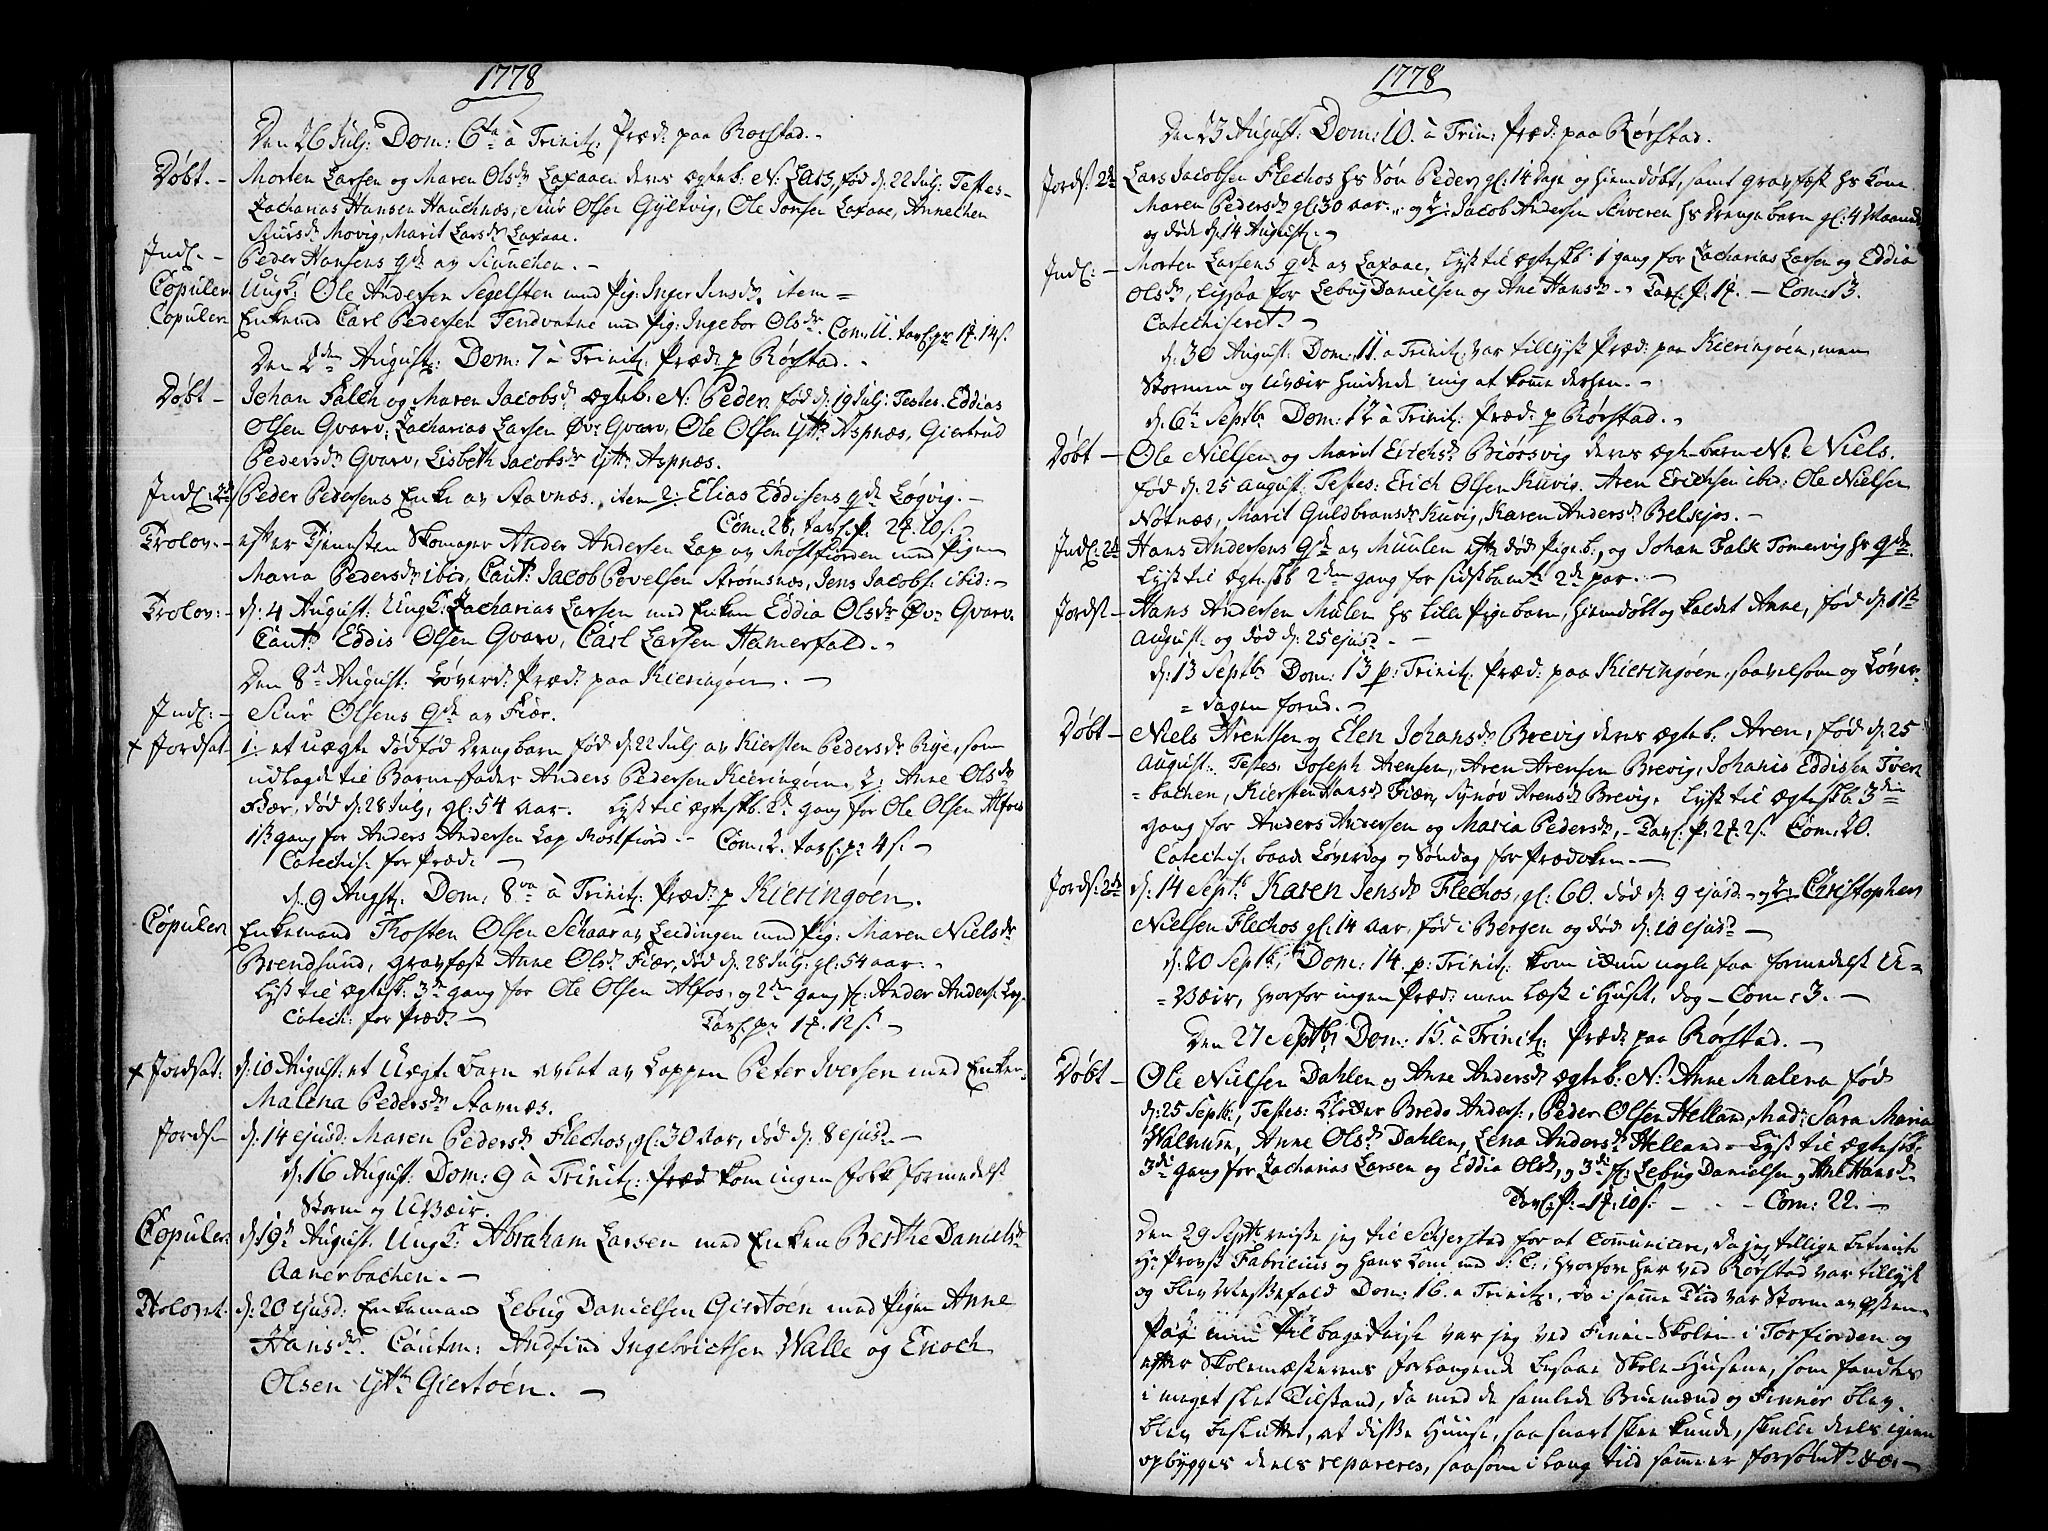 1778
Den 26 Julj: Dom: 6ta à Trinit: Præd: paa Rørstad. -
Døbt. - Morten Larsen og Maren Olsdr Laxaaen deres ægteb: N: Lars, fød d: 22 Julj: Testes -
Zacharias Hansen Hauchnæs, Siur Olsen Gyltvig, Ole Jonsen Laxaae, Annechen
Siursdr Movig, Marit Larsdr Laxaae.
Indl. - Peder Hansens qde av Siunchen. -
Copuler: Ungk: Ole Andersen Segelsten med pig: Inger Jensdr. item =
Copuler: Enkemd Carl Pedersen Tendvatne med pig: Ingebor Olsdr. Com: 11. tavl: pr 1 14 s.
Den 2den August: Dom: 7 à Trinit: Præd: p Rørstad. -
Døbt - Johan Falch og Maren Jacobsdr ægteb. N: Peder, fød d: 19 Julj: Testes. Eddias
Olsen Qvarv, Zacharias Larsen Øvr Qvarv, Ole Olsen Ytt: Aspnæs, Giertrud
Pedersdr Qvarv, Lisbeth Jacobsdr Ytt: Aspnæs.
Indl: 2de Peder Pedersens Enke av Stavnæs. item 2. Elias Eddissens qde Løgvig. -
Com: 28, tavl: p. 2 10 s. -
Trolov. - efter Tjenesten Skomager Ander Andersen Lap av Mostfiorden med Pigen
Maria Pedersdr ibid, Caut: Jacob Pevelsen Strømsnæs, Jens Jacobs: ibid: -
Trolov: - d: 4 August: Ungk: Zacharias Larsen med Enken Eddia Olsdr Øvr Qvarv.
Caut: Eddis Olsen Qvarv, Carl Larsen Hamerfald. -
Den 8de August: Løverd: Præd: paa Kieringøen. -
Indl: - Siur Olsens qde av Fiær.
+ Jordsat 1. et uægte dødfød Drengbarn fød d: 22 Julj av Kiersten Pedersdr Rye, som
udlagde til Barnefader Anders Pedersen Kieringøen. 2: Anne Olsdr
Fiær, død d: 28 Julj, gl: 54 aar. Lyst til ægtesk: 2de gang for Ole Olsen Alfos
1ste gang for Anders Andersen Lap Mostfiord. - Com: 2. tavl: p: 4 s. -
Catechis: for Præd: -
d: 9 Augst: Dom: 8va à Trinit: Præd: p Kieringøen.
Copuler: Enkemand Thosten Olsen Schaar av Leidingen med pig: Maren Nielsdr
Brendsund, gravfæst Anne Olsdr Fiær, død d: 28 Julj: gl: 54 aar. -
Lyst til ægtesk: 3de gang for Ole Olsen Alfos, og 2den gang for Ander Anders: Lap.
Catech: for Præd: - Tavl: p: 1 12 s. -
+ Jordsat: d: 10 August: et Uægte barn avlet av Lappen Peter Iversen med Enken
Malena Pedersdr Stavnæs.
Jords - d: 14 ejusd: Maren Pedersdr Flechos, gl: 30 Aar, død d: 8 ejusd. -
d: 16 August: Dom: 9 à Trinit: Præd kom ingen folk formedelst
Storm og Uveir.
Copuler: d: 19de August. Ungk: Abraham Larsen med Enken Berthe Danielsdr
Aanerbachen. -
Trolovet. d: 20 ejusd: Enkemand Lebug Danielsen Giertøen med Pigen Anne
Hansdr. Cautm: Andfind Ingebrietsen Walle og Enoch
Olsen Ytt: Giertøen. -
1778
Den 23 August: Dom: 10. à Trin: Præd: paa Rørstad.
Jords: 2de Lars Jacobsen Flechos hs Søn Peder, gl: 14 Dage og hiemdøbt, samt gravfæst hs Kone
Maren Pedersdr gl: 30 aar. og 2: Jacob Andersen Schveren hs Drengebarn gl: 4 Maaned
og døde d: 14 August. -
Indl: - Morten Larsens qde av Laxaae, lyst til ægteskb: 1 gang for Zacharias Larsen og Eddia
Olsdr, ligsaa for Lebug Danielsen og Ane Hansdr. - Tavl: p. 1 - Com: 13.
Catechiseret. -
d: 30 August: Dom: 11. a Trinit: var tillyst Præd: paa Kieringøen, men
Stormen og Uveir hindrede mig at komme derhen. -
d: 6te Septbr Dom: 12 à Trinit: Præd: p Rørstad. -
Døbt - Ole Nielsen og Marit Erichsdr Biørsvig deres ægtebarn N: Niels.
fød d: 25 August: Testes: Erich Olsen Kuvig. Aren Erichsen ibid: Ole Nielsen
Nøtnæs, Marit Guldbransdr Kuvig, Karen Andersdr Belsejos. -
Indl: 2de Hans Andersens qde av Muulen eft: død pigeb:, og Johan Falk Tømervig hs qde.
Lyst til ægteskb 2den gang for sidstbemte 2de par. -
Jords - Hans Andersen Mulen hs lille Pigebarn, hiemdøbt og kaldet Anne, fød d: 11te
August og død d: 25 ejusd. -
d: 13 Septbr Dom: 13 p: Trinit: Præd: paa Kieringøen, saavelsom og Løver-
= dagen forud. -
Døbt - Niels Arentsen og Elen Johansdr Brevig deres ægteb: Aren, fød d: 25
August: Testes Joseph Arensen, Aren Arensen Brevig, Johanis Eddissen Tver
= bachen, Kiersten Hansdr Fiær, Synøv Arensdr Brevig, Lyst til ægteskb 3die
gang for Anders Andersen og Maria Pedersdr, - Tavl: p. 2 2 s. Com: 20.
Catechis: baade Løverdag og Søndag for Prædiken. -
Jords: 2de d: 14 Septbr Karen Jensdr Flechos, gl: 60. død d: 9 ejusd - og 2: Christopher
Nielsen Flechos gl: 14 aar, fød i Bergen og død d: 10 ejusd -
d: 20 Septbr, Dom: 14 p: Trinit: kom icun nogle faa formedelst U-
= veir, hvorfor ingen Præd: men læst i Huset, dog - Com: 3. -
Den 27 Septbr Dom: 15. à Trinit: Præd: paa Rørstad. -
Døbt - Ole Nielsen Dahlen og Anne Andersdr ægteb: N: Anne Malena fød
d: 25 Septbr, Testes: Klocker Brede Anders:, Peder Olsen Helland, Mad: Sara Maria
Walnum, Anne Olsdr Dahlen, Lena Andersdr Helland - Lyst til ægteskb
3de gang for Zacharias Larsen og Eddia Olsdr, og 3de for Lebug Danielsen og Ane Hansdr.
Tavl: p. 1 10 s. - - - Com: 22. -
Den 29 Septbr reiste jeg til Schjerstad for at Communicere, da jeg tillige betiente
Hr Provst Fabricius og hans Kone med S: C:, hvorfor her ved Rørstad var tillyst
og blev Messefald Dom: 16. a Trinit:, da i samme Tiid var Storm av Østen.
Paa min Tilbagereise var jeg ved Finne-Skolen i Torfiorden og
efter Skolemæsterens forlangende besaae Skole-Husene, som fandtes
i meget slet Tilstand, da med de samlede Buemænd og Finner blev
blev besluttet, at disse Huuse, saa snart skee kunde, skulle deels igien
opbygges deels repareres, saasom i lang tiid samme er forsømt at være -